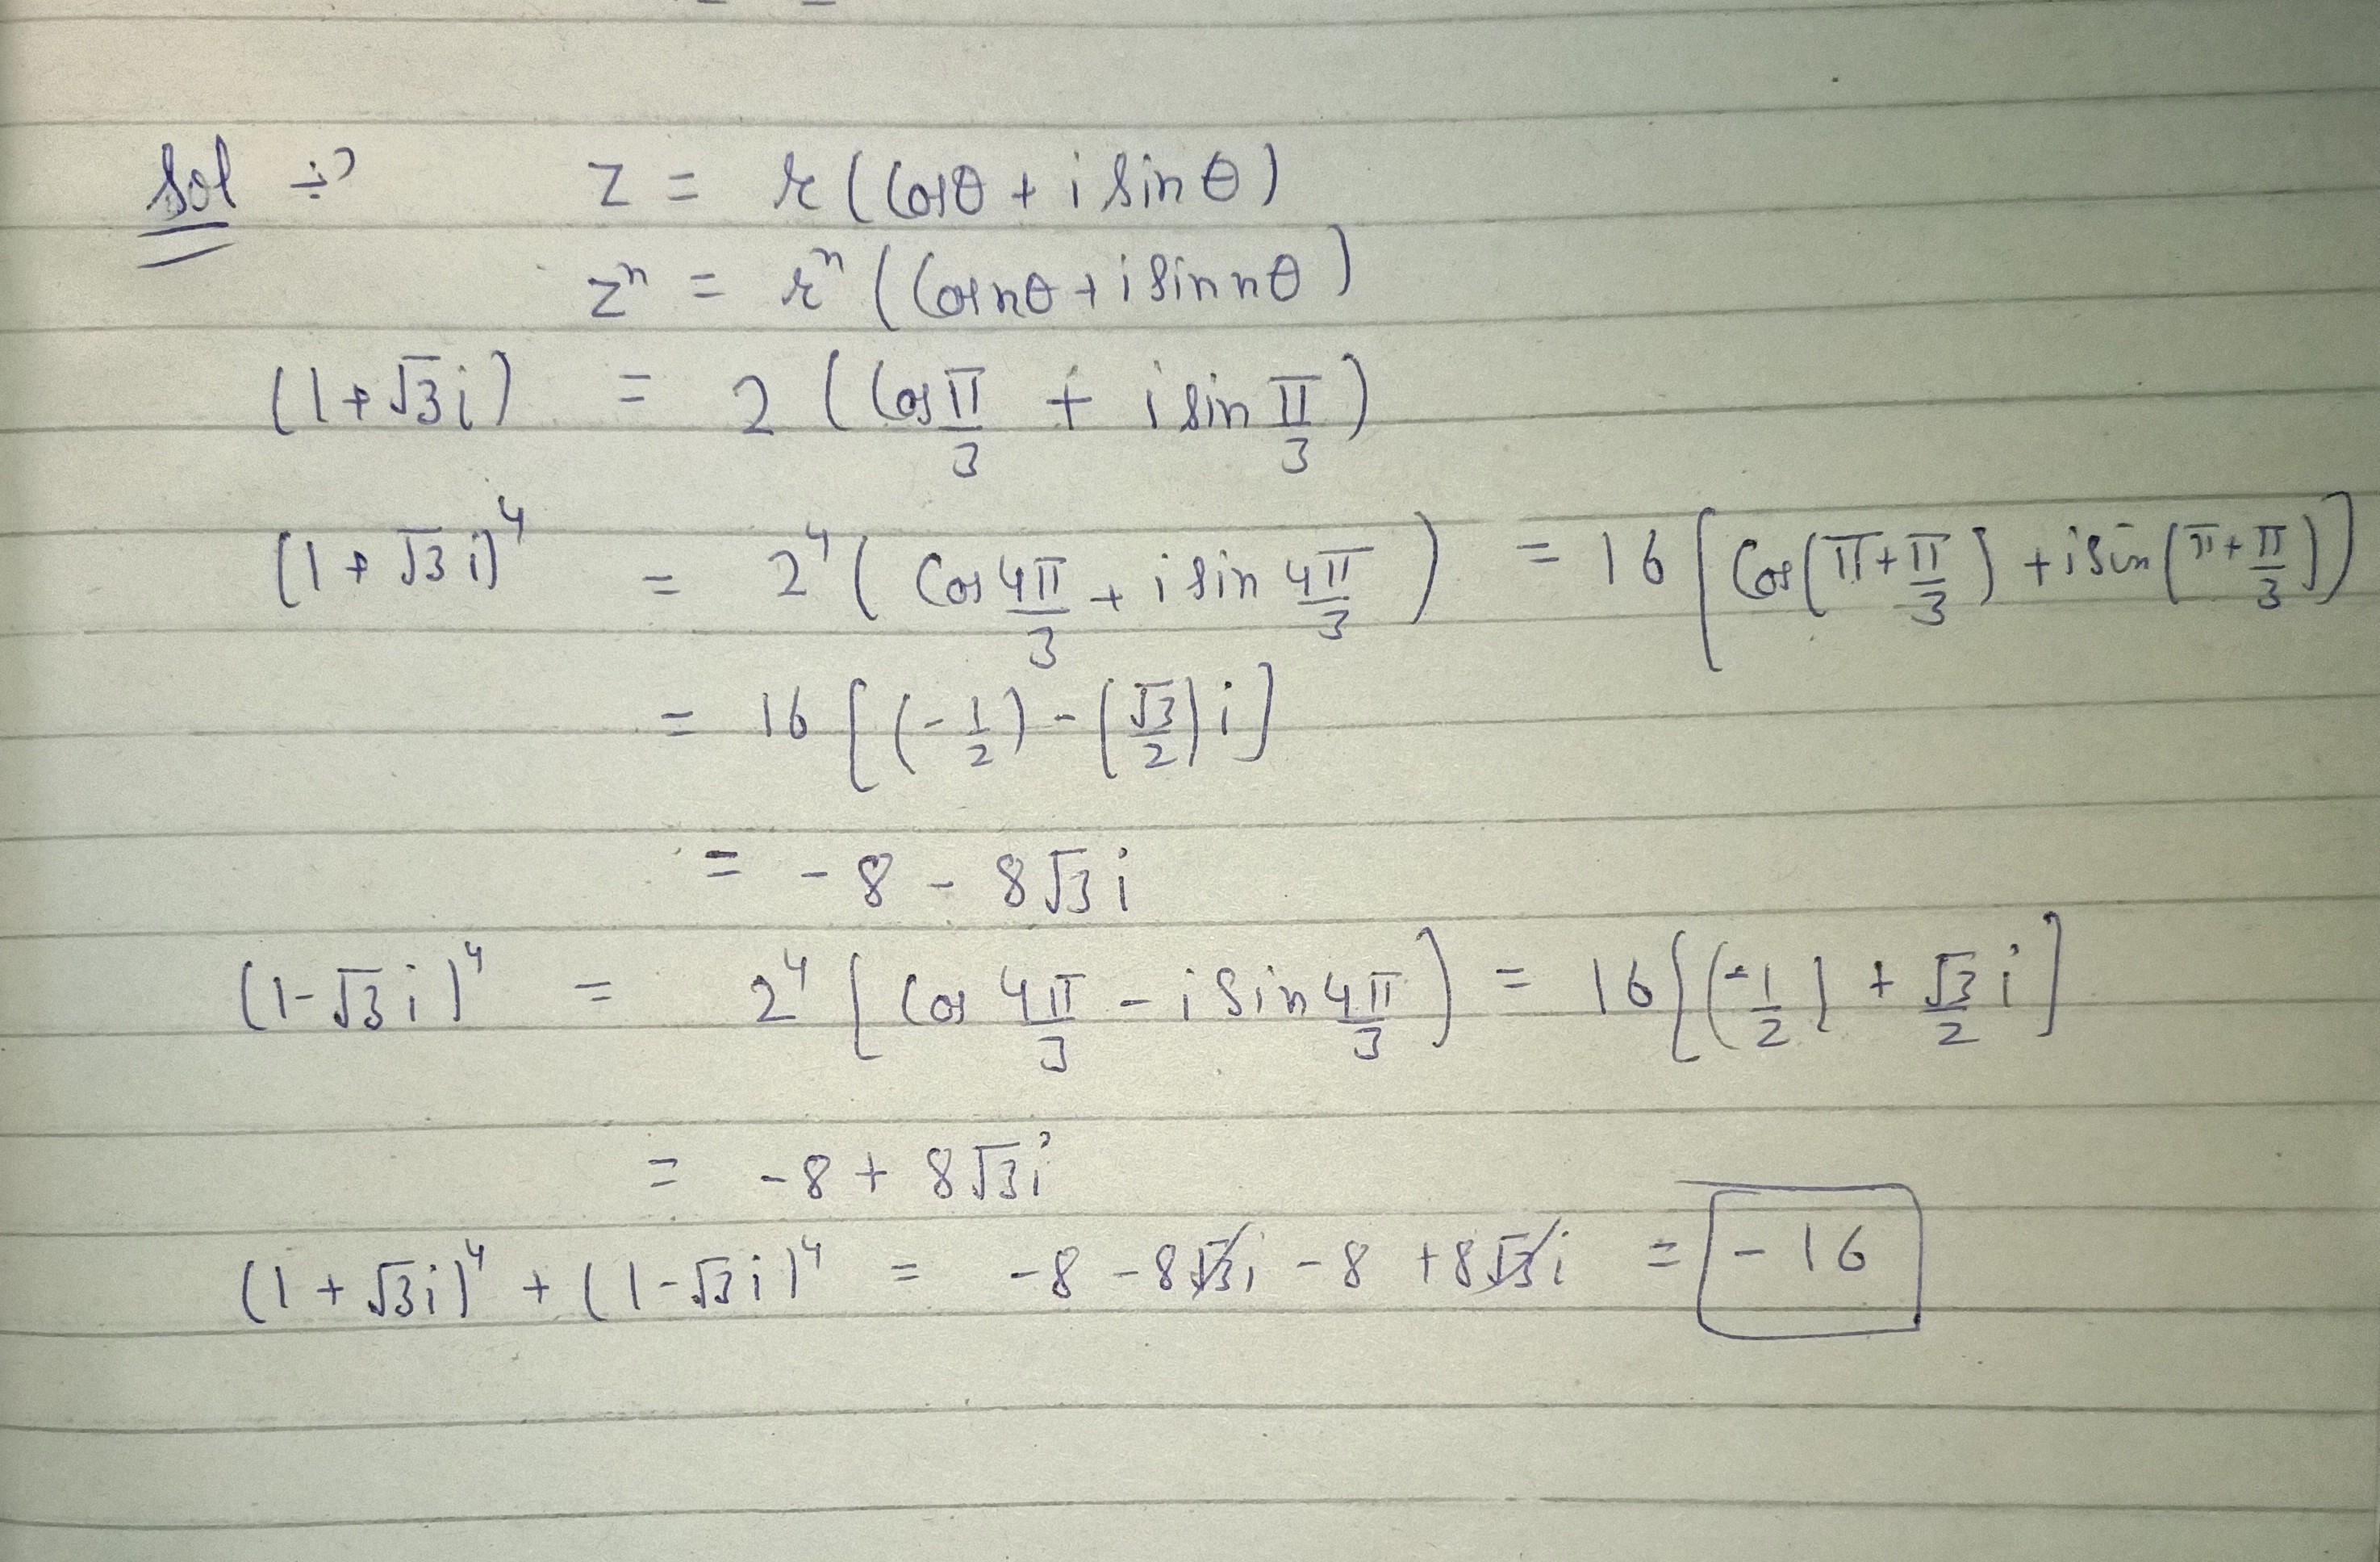 Sol ÷> z = r (Cosθ + i Sinθ)
zⁿ = rⁿ (Cosnθ + i Sin nθ)
(1+√3i) = 2 (Cos π/3 + i Sin π/3)
(1+√3i)⁴ = 2⁴ (Cos 4π/3 + i Sin 4π/3) = 16 [Cos(π+π/3) + i Sin(π+π/3)]
= 16 [(-1/2) - (√3/2) i]
= -8 - 8√3i
(1-√3i)⁴ = 2⁴ [Cos 4π/3 - i Sin 4π/3] = 16 [(-1/2) + √3/2 i]
= -8 + 8√3i
(1+√3i)⁴ + (1-√3i)⁴ = -8 - 8√3i - 8 + 8√3i = -16